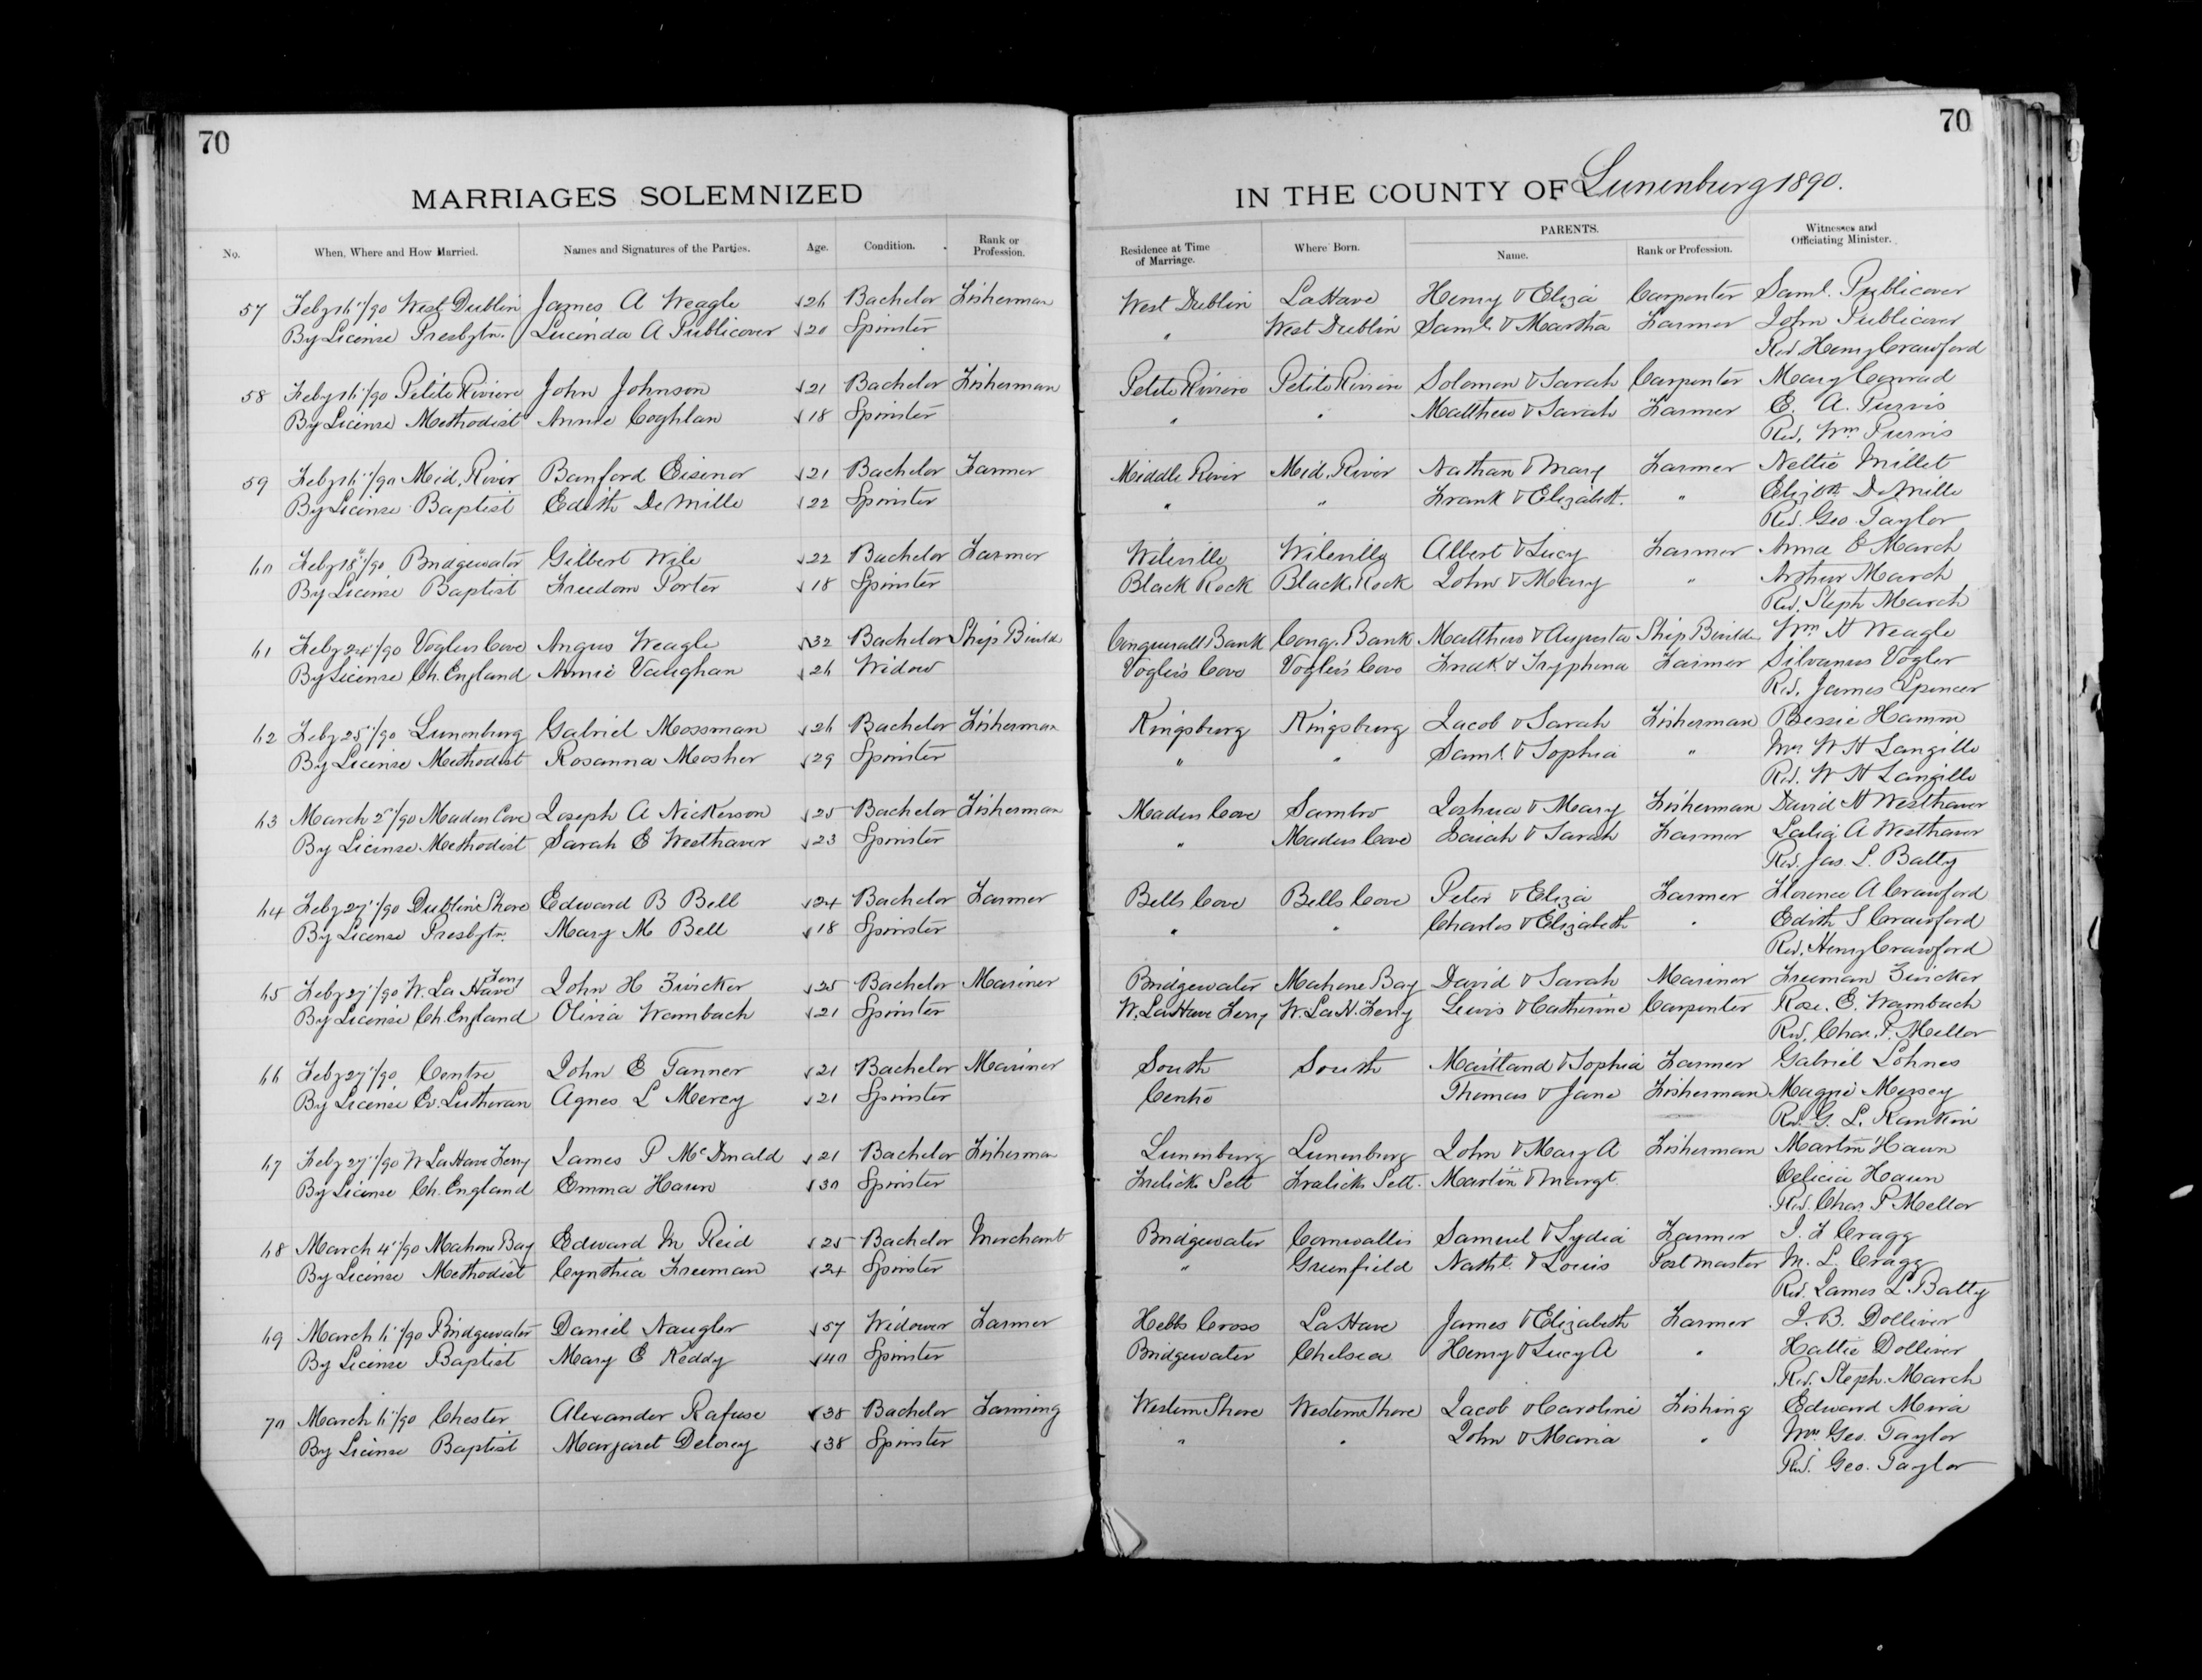 70
MARRIAGES SOLEMNIZED
No. When, Where and How Married. Names and Signatures of the Parties. Age. Condition. Rank or Profession.
57 Feby 16"/90 West Dublin James A Weagle 26 Bachelor Fisherman
By License Presbytn. Lucinda A Publicover 20 Spinster
58 Feby 16"/90 Petite Riviere John Johnson 21 Bachelor Fisherman
By License Methodist Annie Coghlan 18 Spinster
59 Feby 16"/90 Mid. River Banford Eisenor 21 Bachelor Farmer
By License Baptist Edith DeMille 22 Spinster
60 Feby 18"/90 Bridgewater Gilbert Wile 22 Bachelor Farmer
By License Baptist Freedom Porter 18 Spinster
61 Feby 24"/90 Voglers Cove Angus Weagle 32 Bachelor Ship Build
By License Ch. England Annie Vaughan 26 Widow
62 Feby 25"/90 Lunenburg Gabriel Mossman 26 Bachelor Fisherman
By License Methodist Rosanna Mosher 29 Spinster
63 March 2"/90 Maders Cove Joseph A Nickerson 25 Bachelor Fisherman
By License Methodist Sarah E Westhaver 23 Spinster
64 Feby 27"/90 Dublin Shore Edward B Bell 24 Bachelor Farmer
By License Presbytn. Mary M Bell 18 Spinster
65 Feby 27"/90 W. La Have Ferry John H Zwicker 25 Bachelor Mariner
By License Ch. England Olivia Wambach 21 Spinster
66 Feby 27"/90 Centre John E Tanner 21 Bachelor Mariner
By License Ev. Lutheran Agnes L Mercy 21 Spinster
67 Feby 27"/90 W LaHave Ferry James P McDonald 21 Bachelor Fisherman
By License Ch. England Emma Haun 30 Spinster
68 March 4"/90 Mahone Bay Edward M Reid 25 Bachelor Merchant
By License Methodist Cynthia Freeman 24 Spinster
69 March 6"/90 Bridgewater Daniel Naugler 57 Widower Farmer
By License Baptist Mary E Keddy 40 Spinster
70 March 6"/90 Chester Alexander Rafuse 38 Bachelor Farming
By License Baptist Margaret Delorey 38 Spinster
70
IN THE COUNTY OF Lunenburg 1890.
Residence at Time of Marriage. Where Born. PARENTS. Name. Rank or Profession. Witnesses and Officiating Minister.
West Dublin LaHave Henry & Eliza Carpenter Saml. Publicover
" West Dublin Saml. & Martha Farmer John Publicover
Rev. Henry Crawford
Petite Riviere Petite Riviere Solomon & Sarah Carpenter Mary Conrad
" " Matthew & Sarah Farmer E. A. Purvis
Rev. Wm Purvis
Middle River Mid. River Nathan & Mary Farmer Nellie Millet
" " Frank & Elizabeth. " Elizbth DeMille
Rev. Geo. Taylor
Wileville Wileville Albert & Lucy Farmer Anna E March
Black Rock Black Rock John & Mary " Arthur March
Rev. Steph March
Conquerall Bank Conq. Bank Matthew & Augusta Ship Builder Wm H Weagle
Vogler's Cove Vogler's Cove Fredk & Tryphena Farmer Silvanus Vogler
Rev. James Spencer
Kingsburg Kingsburg Jacob & Sarah Fisherman Bessie Hamm
" " Saml. & Sophia " Mrs W H Langille
Rev. W H Langille
Maders Cove Sambro Joshua & Mary Fisherman David H Westhaver
" Maders Cove Isaiah & Sarah Farmer A Westhaver
Rev. Jas. L. Batty
Bells Cove Bells Cove Peter & Eliza Farmer Florence A Crawford
" " Charles & Elizabeth " Edith S Crawford
Rev. Henry Crawford
Bridgewater Mahone Bay David & Sarah Mariner Freeman Zwicker
W. LaHave Ferry W. LaH. Ferry Lewis & Catherine Carpenter Rose. E. Wambach
Rev. Chas. P. Mellor
South South Maitland & Sophia Farmer Gabriel Lohnes
Centre Thomas & Jane Fisherman Maggie Mersey
Rev. G. L. Rankin
Lunenburg Lunenburg John & Mary A Fisherman Martin Haun
Fralicks Sett Fralicks Sett. Martin & Margt. Celicia Haun
Rev. Chas. P Mellor
Bridgewater Cornwallis Samuel & Lydia Farmer J. F Cragg
" Greenfield Nathl. & Louis Post Master M. L. Cragg
Rev. James L. Batty
Hebbs Cross LaHave James & Elizabeth Farmer J. B. Dolliver
Bridgewater Chelsea Henry & Lucy A " Hattie Dolliver
Rev. Steph. March
Western Shore Western Shore Jacob & Caroline Fishing Edward Mira
" " John & Maria " Mrs Geo. Taylor
Rev. Geo. Taylor